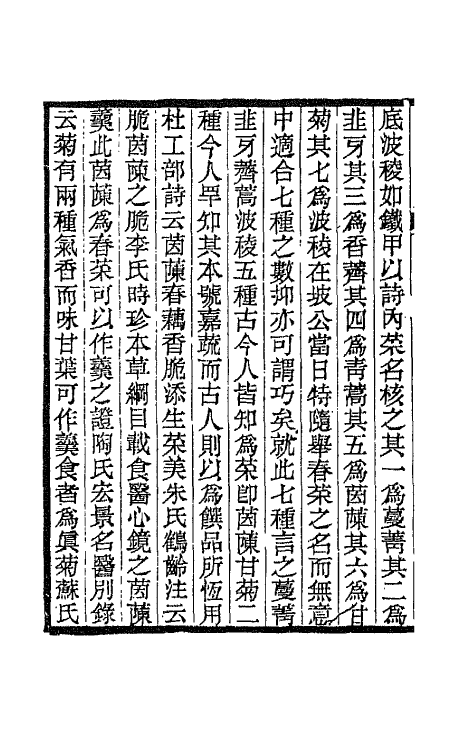 底波稜如鐵甲以詩內菜名核之其一爲蔓菁其二爲
韭芽其三爲香薺其四爲青蒿其五爲茵蔯其六爲甘
菊其七爲波稜在坡公當日特隨舉春菜之名而無意
中適合七種之數抑亦可謂巧矣就此七種言之蔓菁
韭芽薺蒿波稜五種古今人皆知爲菜卽茵蔯甘菊二
種今人罕知其本號嘉蔬而古人則以爲饌品所恆用
杜工部詩云茵蔯春藕香脆添生菜美朱氏鶴齡注云
脆茵蔯之脆李氏時珍本草綱目載食醫心鏡之茵蔯
羹此茵蔯爲春菜可以作羹之證陶氏宏景名醫別錄
云菊有兩種氣香而味甘葉可作羹食者爲眞菊蘇氏